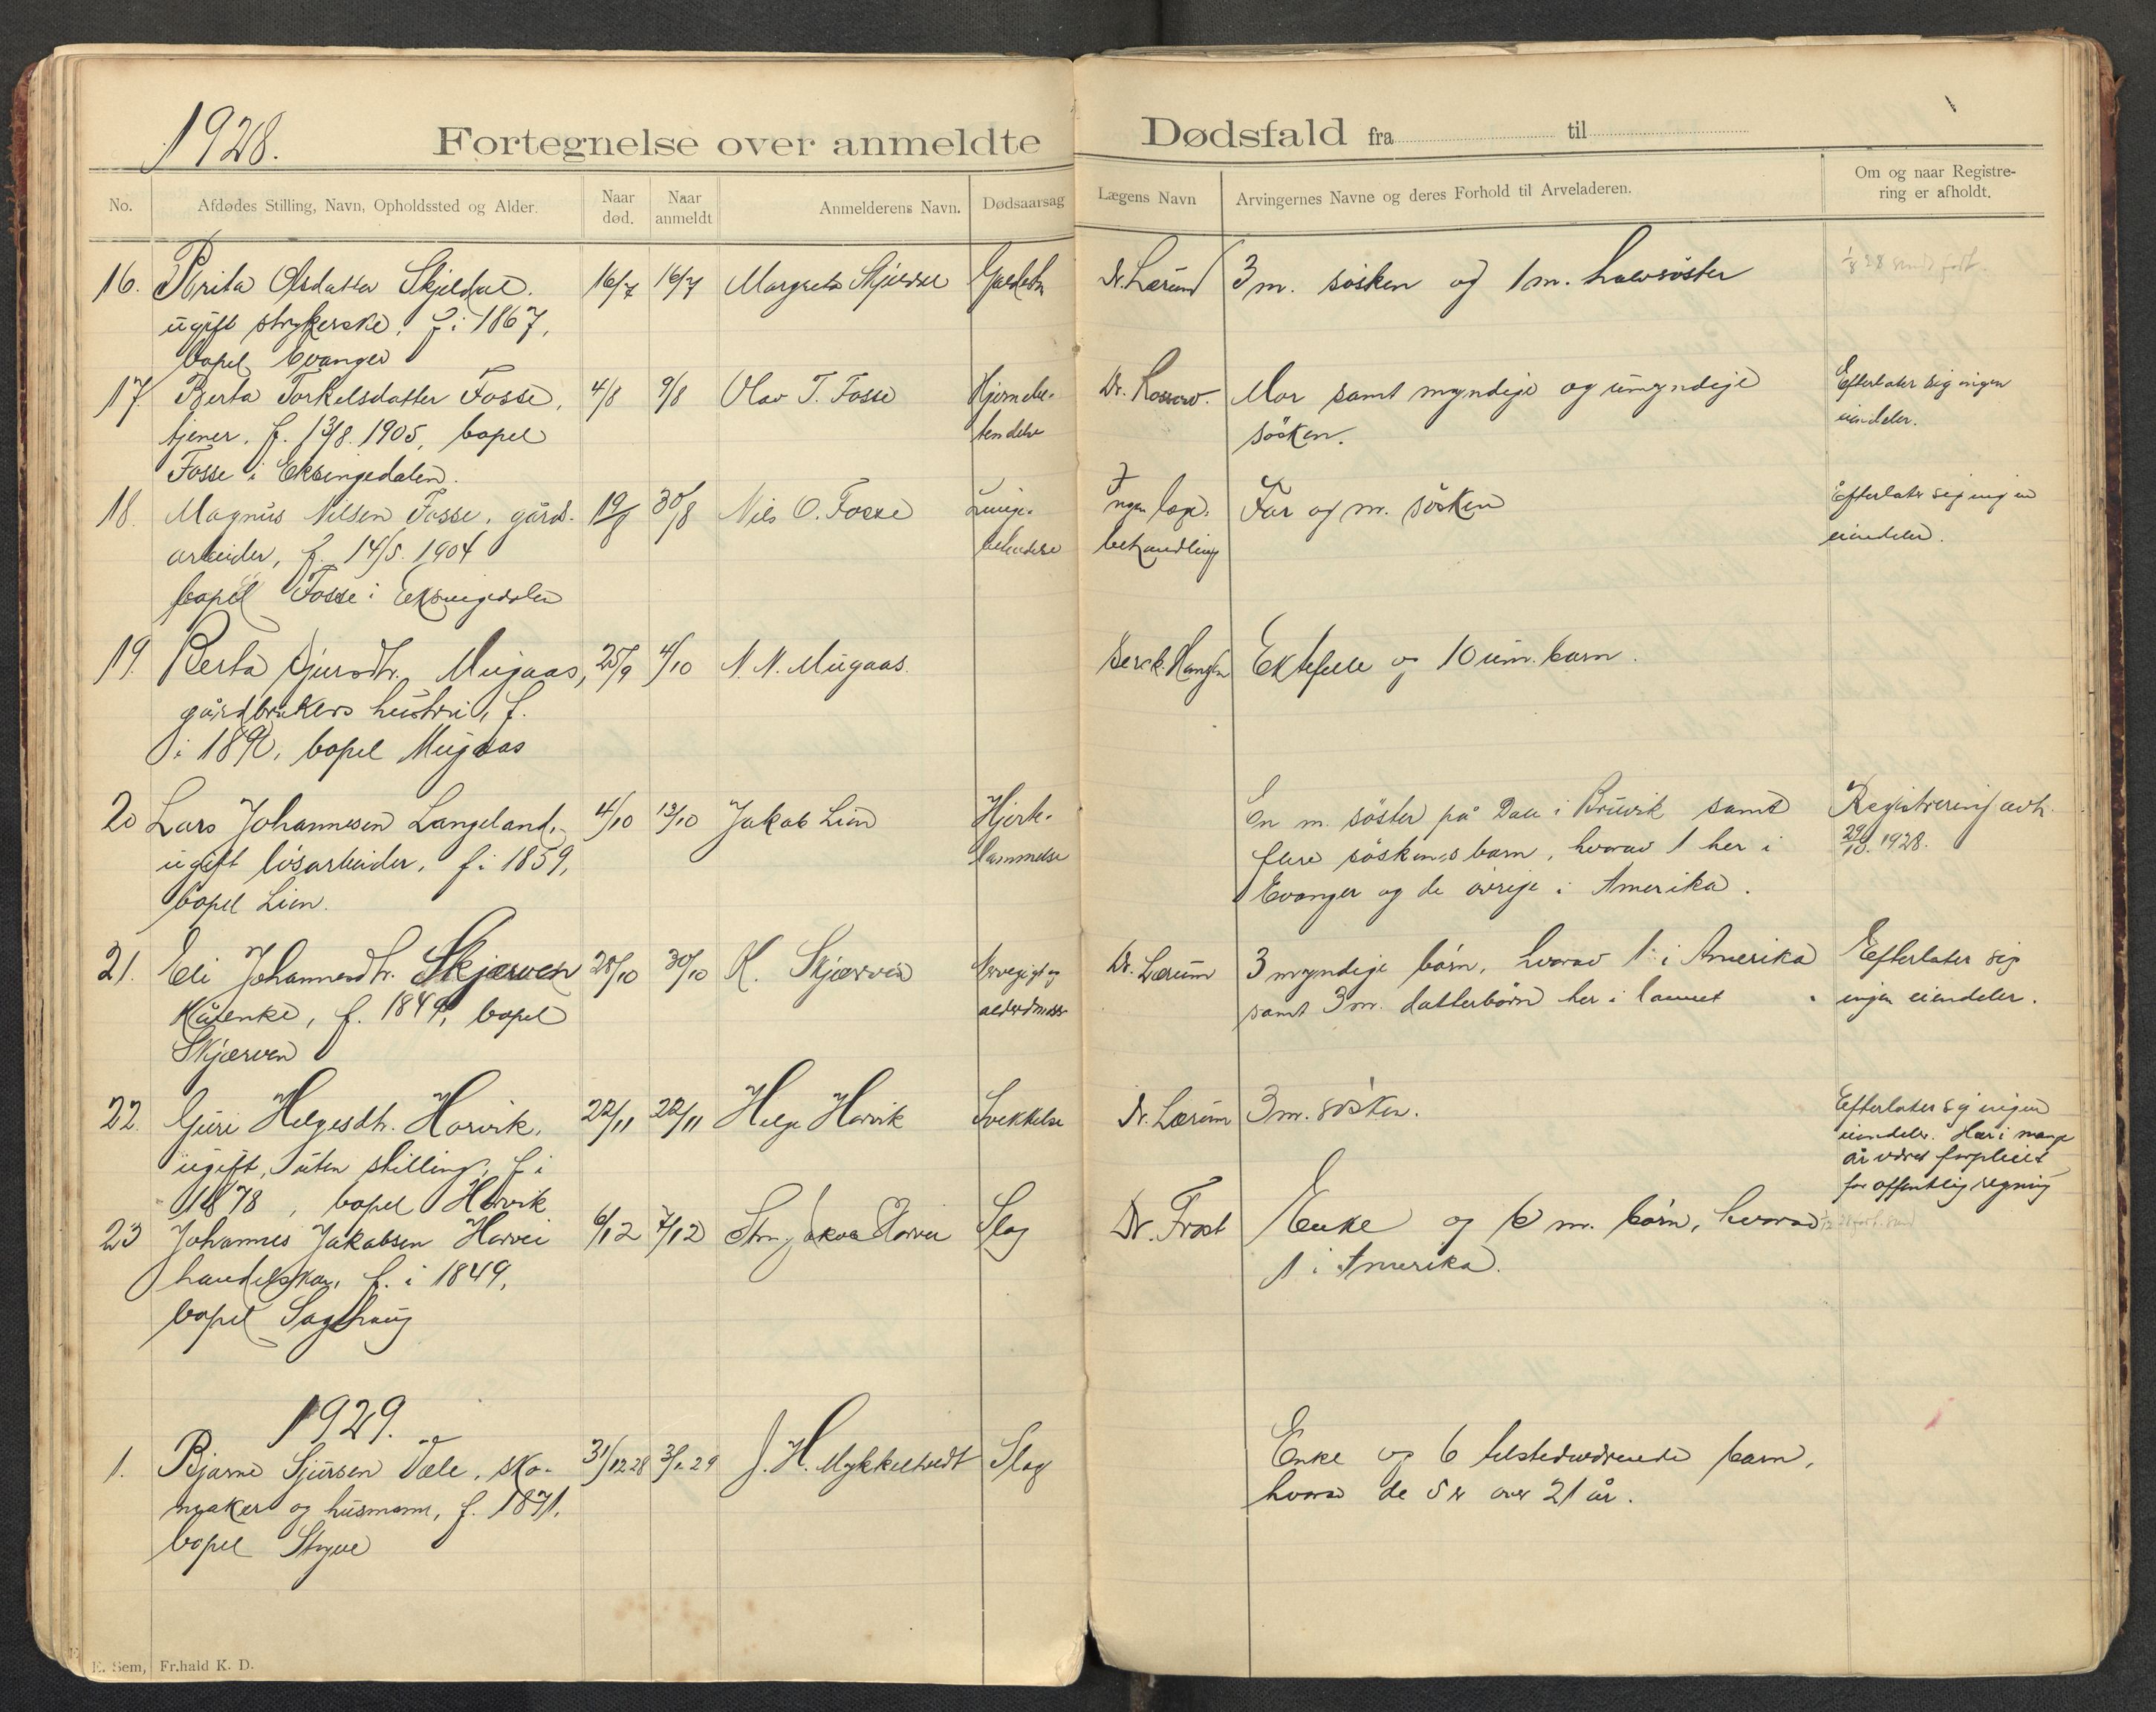 1928.
Fortegnelse over anmeldte Dødsfald fra til
No. Afdødes Stilling, Navn, Opholdssted og Alder. Naar død. Naar anmeldt Anmelderens Navn. Dødsaarsag Lægens Navn Arvingernes Navne og deres Forhold til Arveladeren. Om og naar Registrering er afholdt.
16. Brita Olsdatter Skjeldal. 16/7 16/7 Margreta Skjeldal Dr. Lærum 3 m. søsken og 1 m. halvsøster 1/8 28
ugift strykerske, f. i 1867,
bopel Evanger
17. Berta Torkelsdatter Fosse, 4/8 9/8 Olav T. Fosse Hjernebe- Dr. Mor samt myndige og umyndige Efterlater sig ingen
tjener, f. 13/8. 1905, bopel tendelse søsken. eiendeler.
Fosse i Eksingedalen.
18. Magnus Nilsen Fosse, gårds- 19/8 30/8 Nils O. Fosse Lunge- Ingen læge- Far og m. søsken Efterlater sig ingen
arbeider, f. 14/5. 1904 betendelse behandling eiendeler.
bopel Fosse i Eksingedalen
19. Berta Sjursdtr. Mugaas, 25/9 4/10 N. N. Mugaas. Ektefelle og 10 um. barn.
gårdbrukers hustru, f.
i 1890, bopel Mugaas
20 Lars Johannesen Langeland, 4/10 13/10 Jakob Lien Hjerte- En m. søster på Dale i Bruvik samt Registrering avh.
ugift løsarbeider, f. i 1859, lammelse flere søskens barn, hvorav 1 her i 29/10. 1928.
bopel Lien. Evanger og de øvrige i Amerika.
21. Eli Johannesdtr. Skjærven 28/10 30/10 K. Skjærven Nervegigt og Dr. Lærum 3 myndige børn, hvorav 1 i Amerika Efterlater sig
Kårenke, f. 1849, bopel samt 3 m. datterbørn her i lannet ingen eiendeler.
Skjærven
22. Guri Helgesdtr. Horvik, 22/11 22/11 Helge Horvik Svekkelse Dr. Lærum 3 m. søsken. Efterlater sig ingen
ugift, uten stilling, f. i eiendeler. Har i mange
1878, bopel Horvik år været forpleiet
for offentlig regning
23 Johannes Jakobsen Horvei 6/12 7/12 Slag Dr. Frost Enke og 6 m. børn, hvorav
handelskar, f. i 1849, 1 i Amerika.
bopel Saghaug
1929.
1. Bjarne Sjursen Væle, sko- 31/12 28 3/1 29 J. H. Mykkeltvedt Slag Enke og 6 tilstedeværende barn,
maker og husmann, f. 1871, hvorav de 5 er over 21 år.
bopel Styve
E. Sem, Fr.hald K. D.